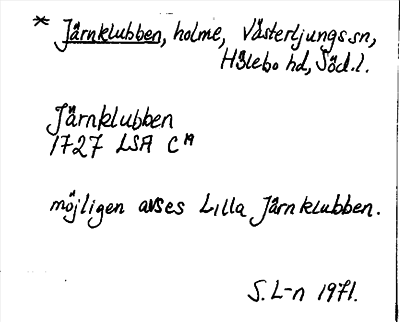 * Järnklubben, holme, Västerljungs sn,
Hölebo hd, Södl.l.
Järnklubben
1727 LSA C^A
möjligen avses Lilla Järnklubben.
S. L-n 1971.